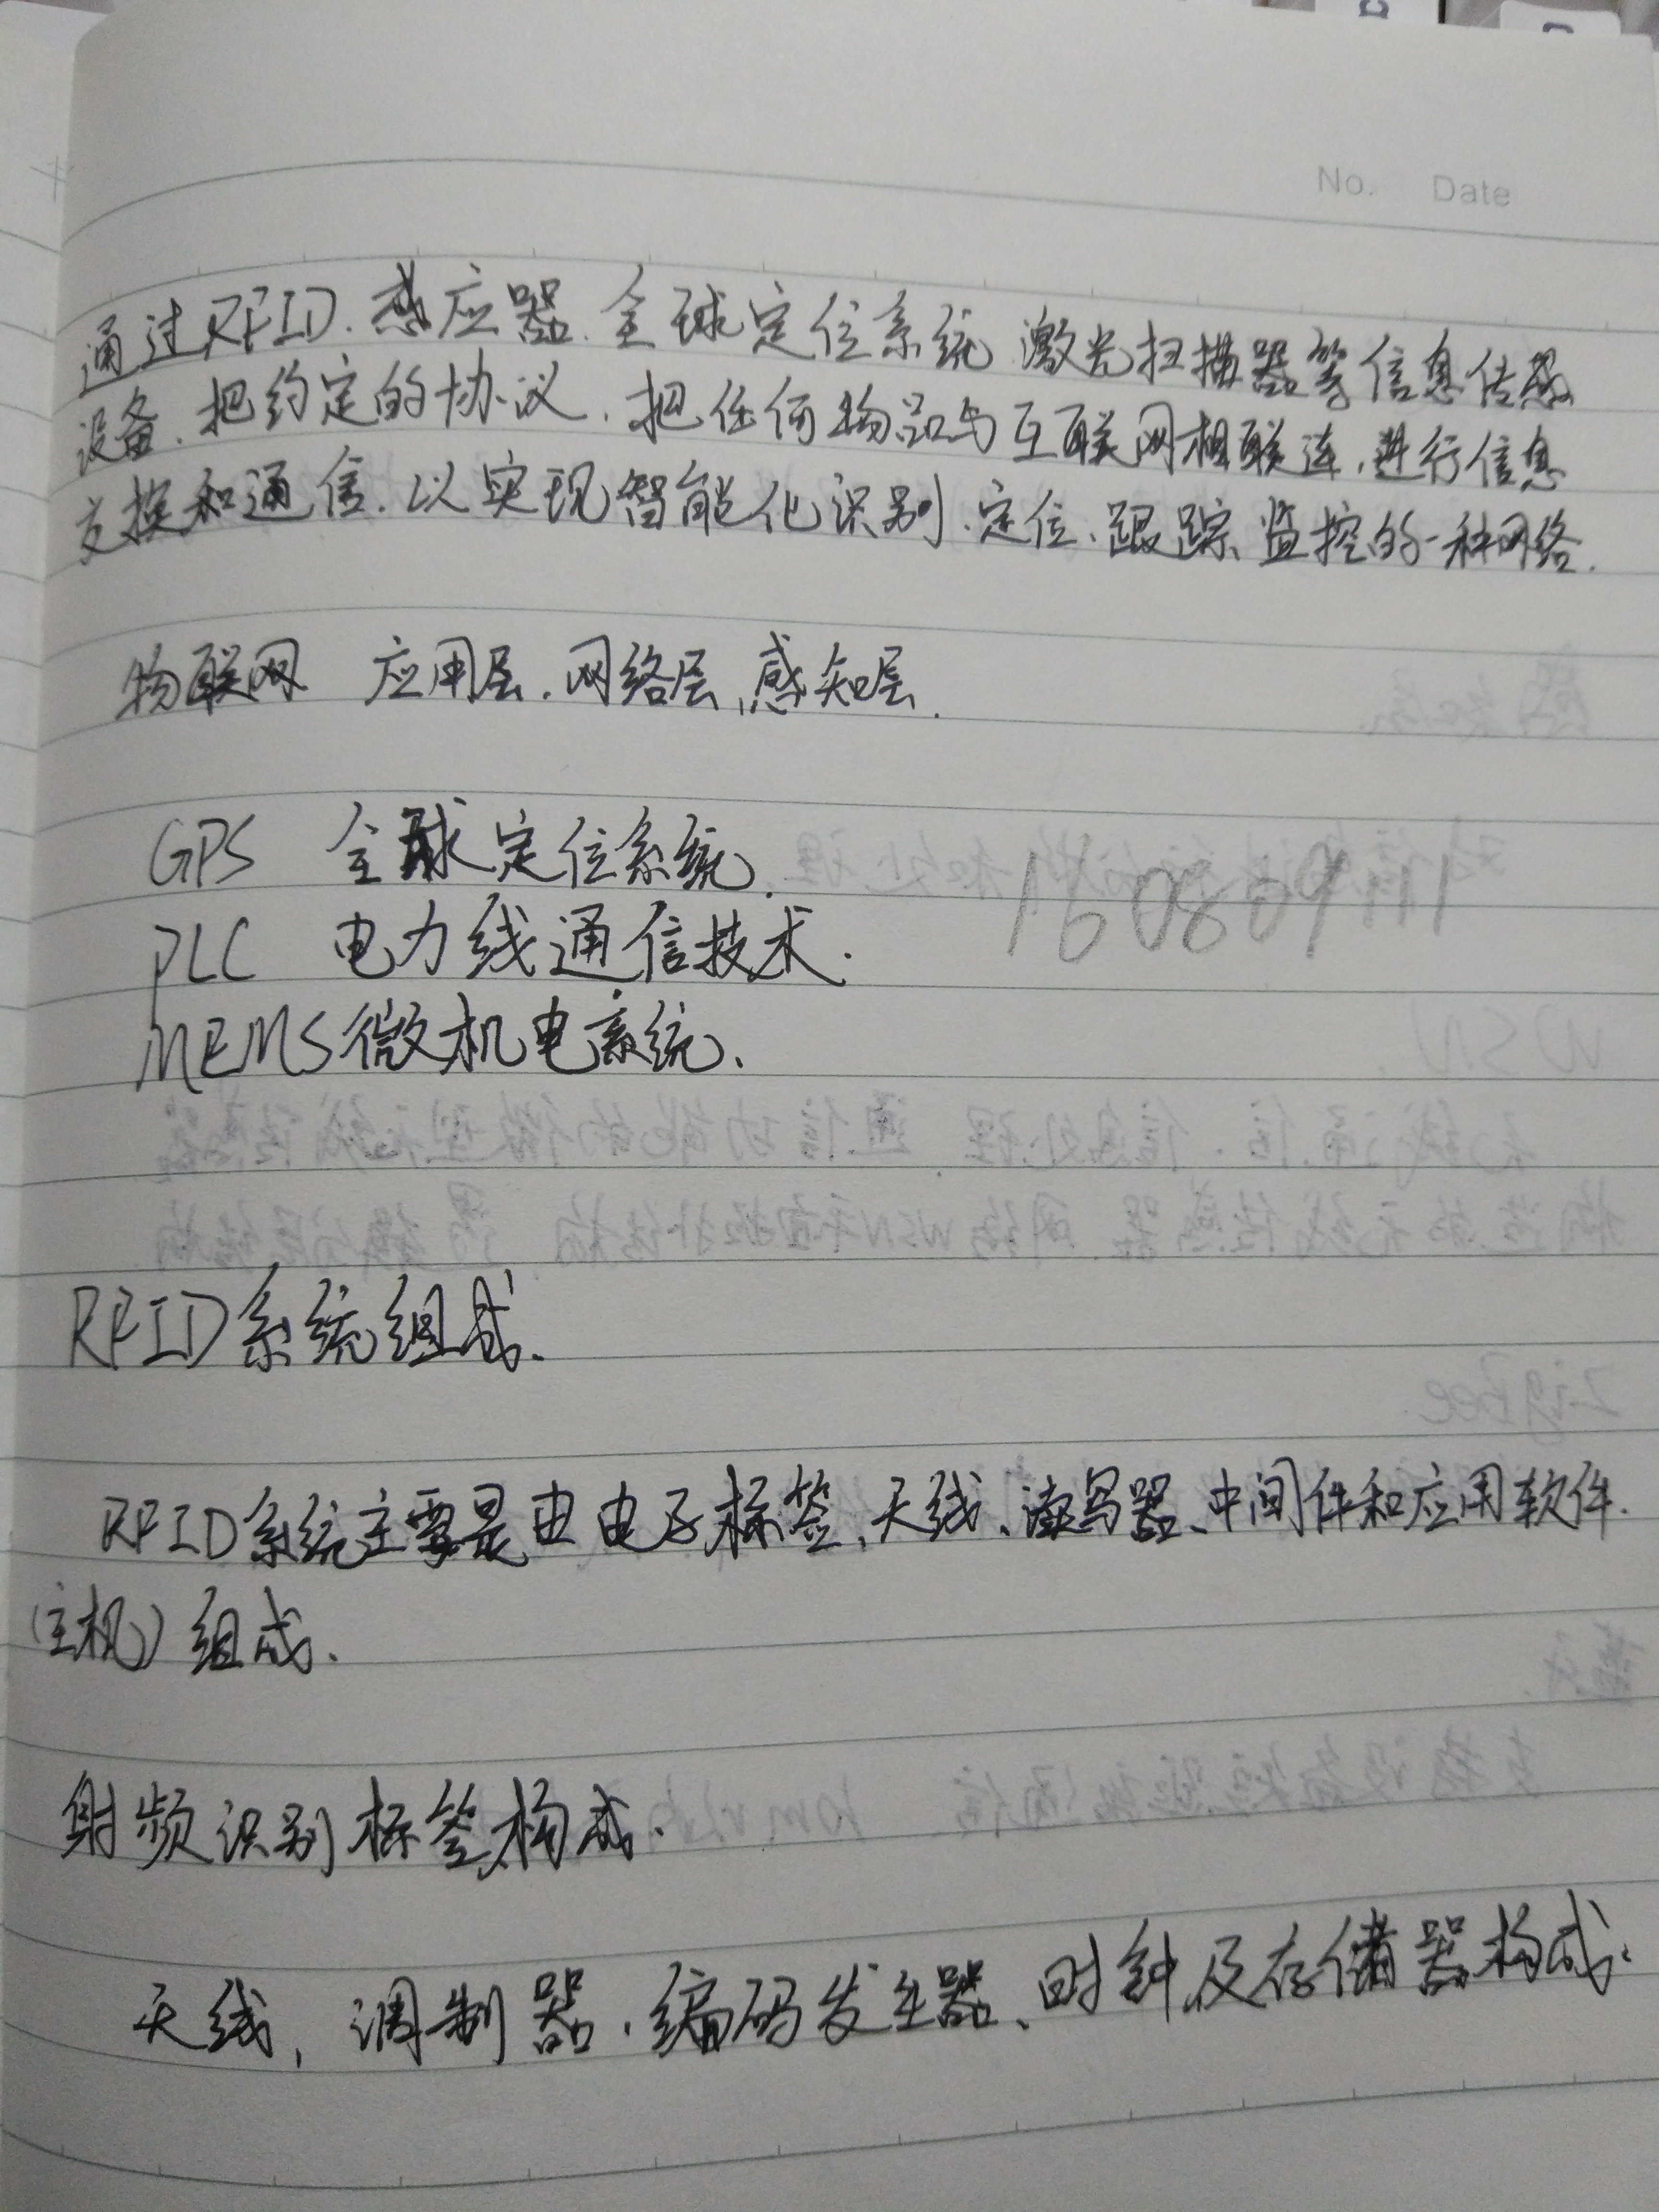 No. Date
通过RFID、感应器、全球定位系统、激光扫描器等信息传感
设备、把约定的协议、把任何物品与互联网相联连,进行信息
交换和通信、以实现智能化识别、定位、跟踪、监控的一种网络.
物联网 应用层、网络层、感知层.
GPS 全球定位系统.
PLC 电力线通信技术.
1608091111
MEMS微机电系统、
RFID系统组成.
RFID系统主要是由电子标签、天线、读写器、中间件和应用软件.
(主机)组成.
射频识别标签构成.
天线,调制器、编码发生器、时钟及存储器构成.